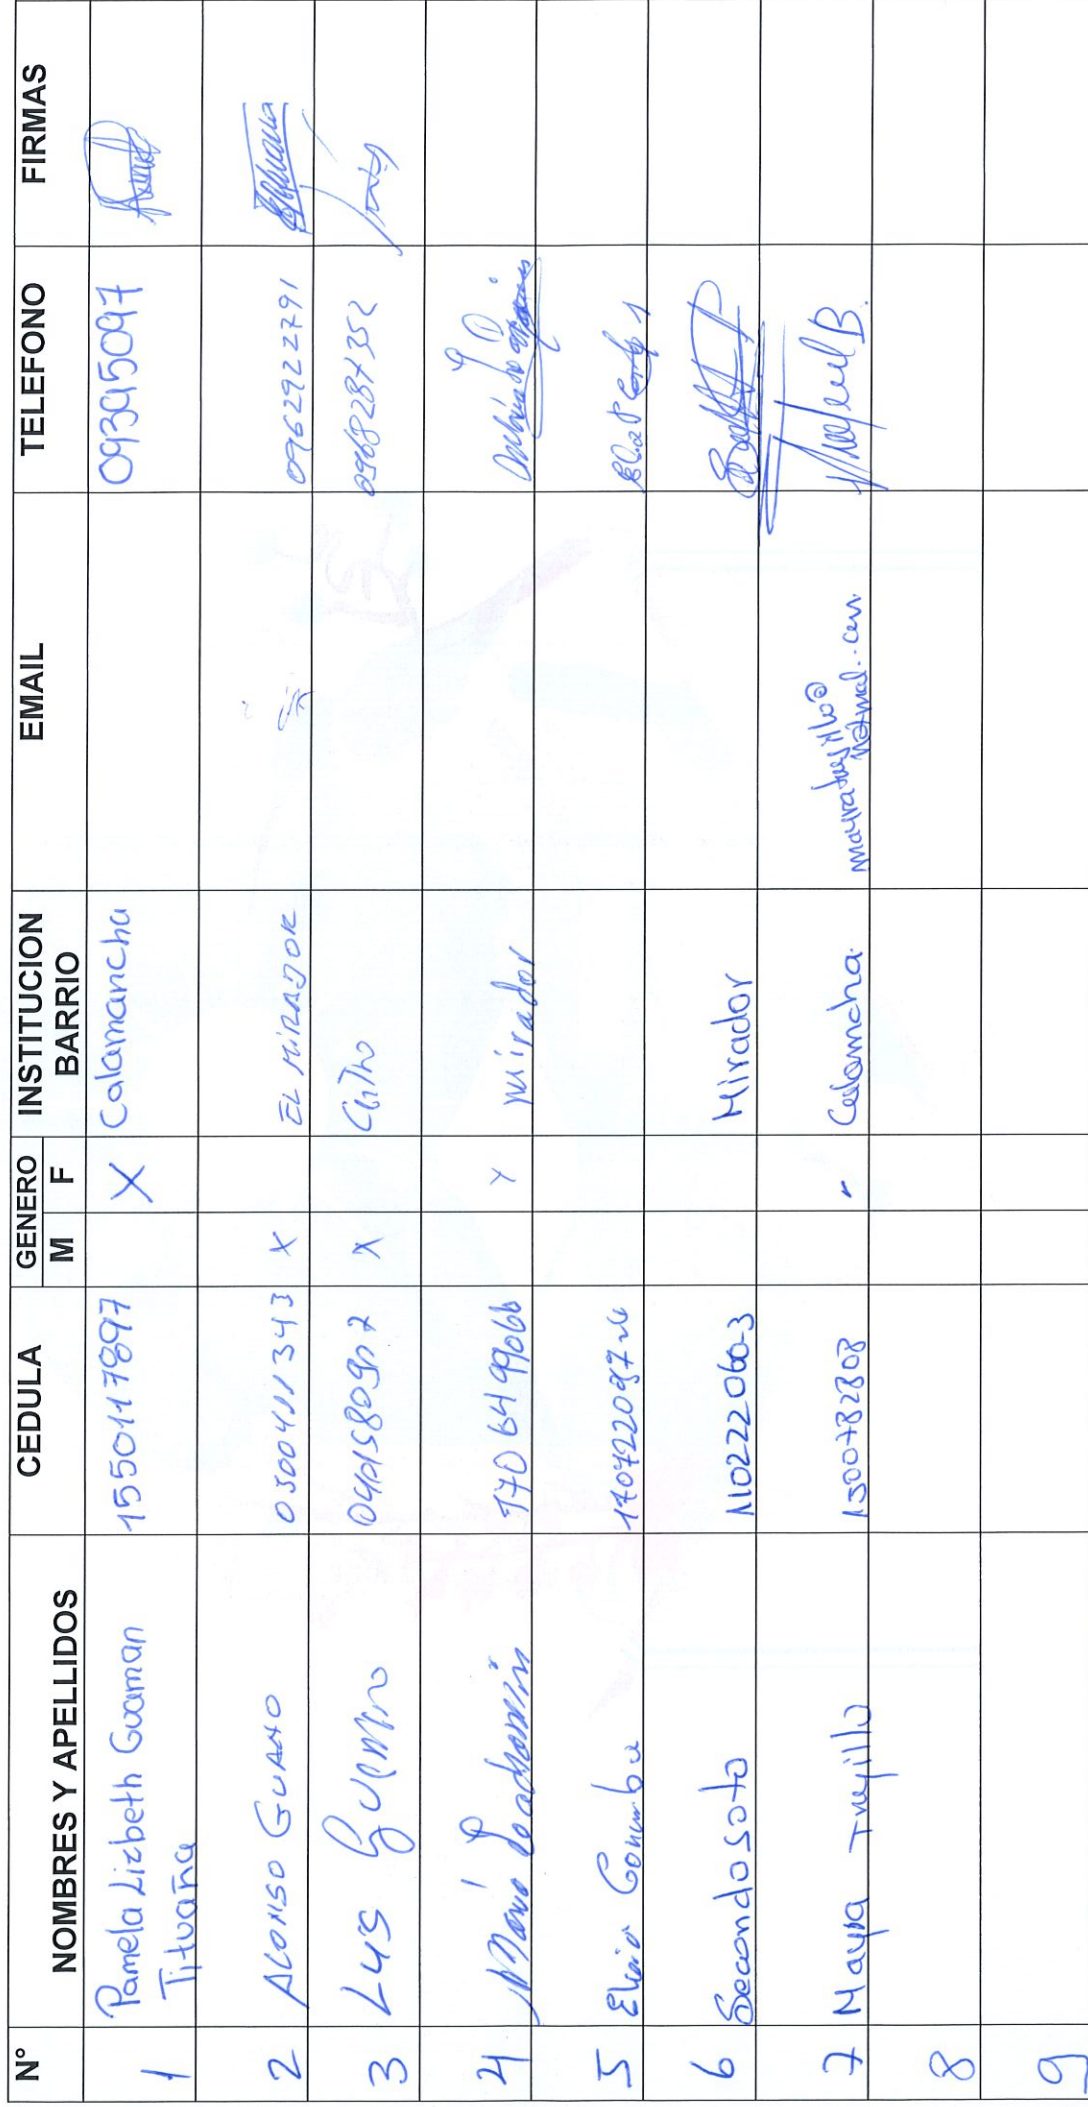 N° NOMBRES Y APELLIDOS CEDULA GENERO M F INSTITUCION BARRIO EMAIL TELEFONO FIRMAS
1 Pamela Lizbeth Guaman Tituaña 1550117897 X Calamancha 093915097
2 ALONSO GUANO 0500411343 X EL MIRADOR 0962922791
3 LUS X 0968287352
4 María 1706499066 X mirador
5 1707220972
6 Secondo Soto 110222060-3 Mirador
7 Mayra Trujillo 1300782808 Calamcha mayratrujillo@
8
9